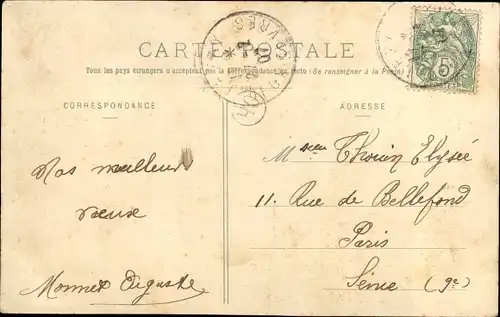 CARTE POSTALE
Tous les pays étrangers n'acceptent pas la correspondance au recto (Se renseigner à la Poste)
CORRESPONDANCE
ADRESSE
Nos meilleurs
vœux
Monnet Auguste
Msieu Thouin Elysée
11. Rue de Bellefond
Paris
Seine (9e)
5c